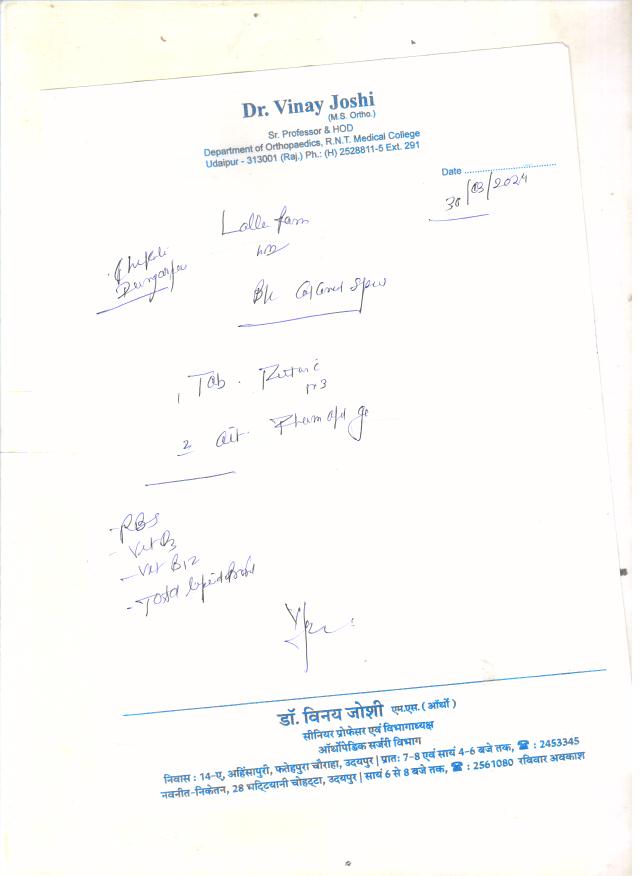 Dr. Vinay Joshi
(M.S. Ortho.)
Sr. Professor & HOD
Department of Orthopaedics, R.N.T. Medical College
Udaipur - 313001 (Raj.) Ph.: (H) 2528811-5 Ext. 291
Date ..............................
30/03/2024
Dungarpur
1 Tab.
2
- RBS
- Vit D3
- Vit B12
- Total Lipid
डॉ. विनय जोशी एम.एस. ( ऑर्थो )
सीनियर प्रोफेसर एवं विभागाध्यक्ष
ऑर्थोपेडिक सर्जरी विभाग
निवास : 14-ए, अहिंसापुरी, फतेहपुरा चौराहा, उदयपुर | प्रात: 7-8 एवं सायं 4-6 बजे तक, ☎ : 2453345
नवनीत-निकेतन, 28 भट्टियानी चोहट्टा, उदयपुर | सायं 6 से 8 बजे तक, ☎ : 2561080 रविवार अवकाश